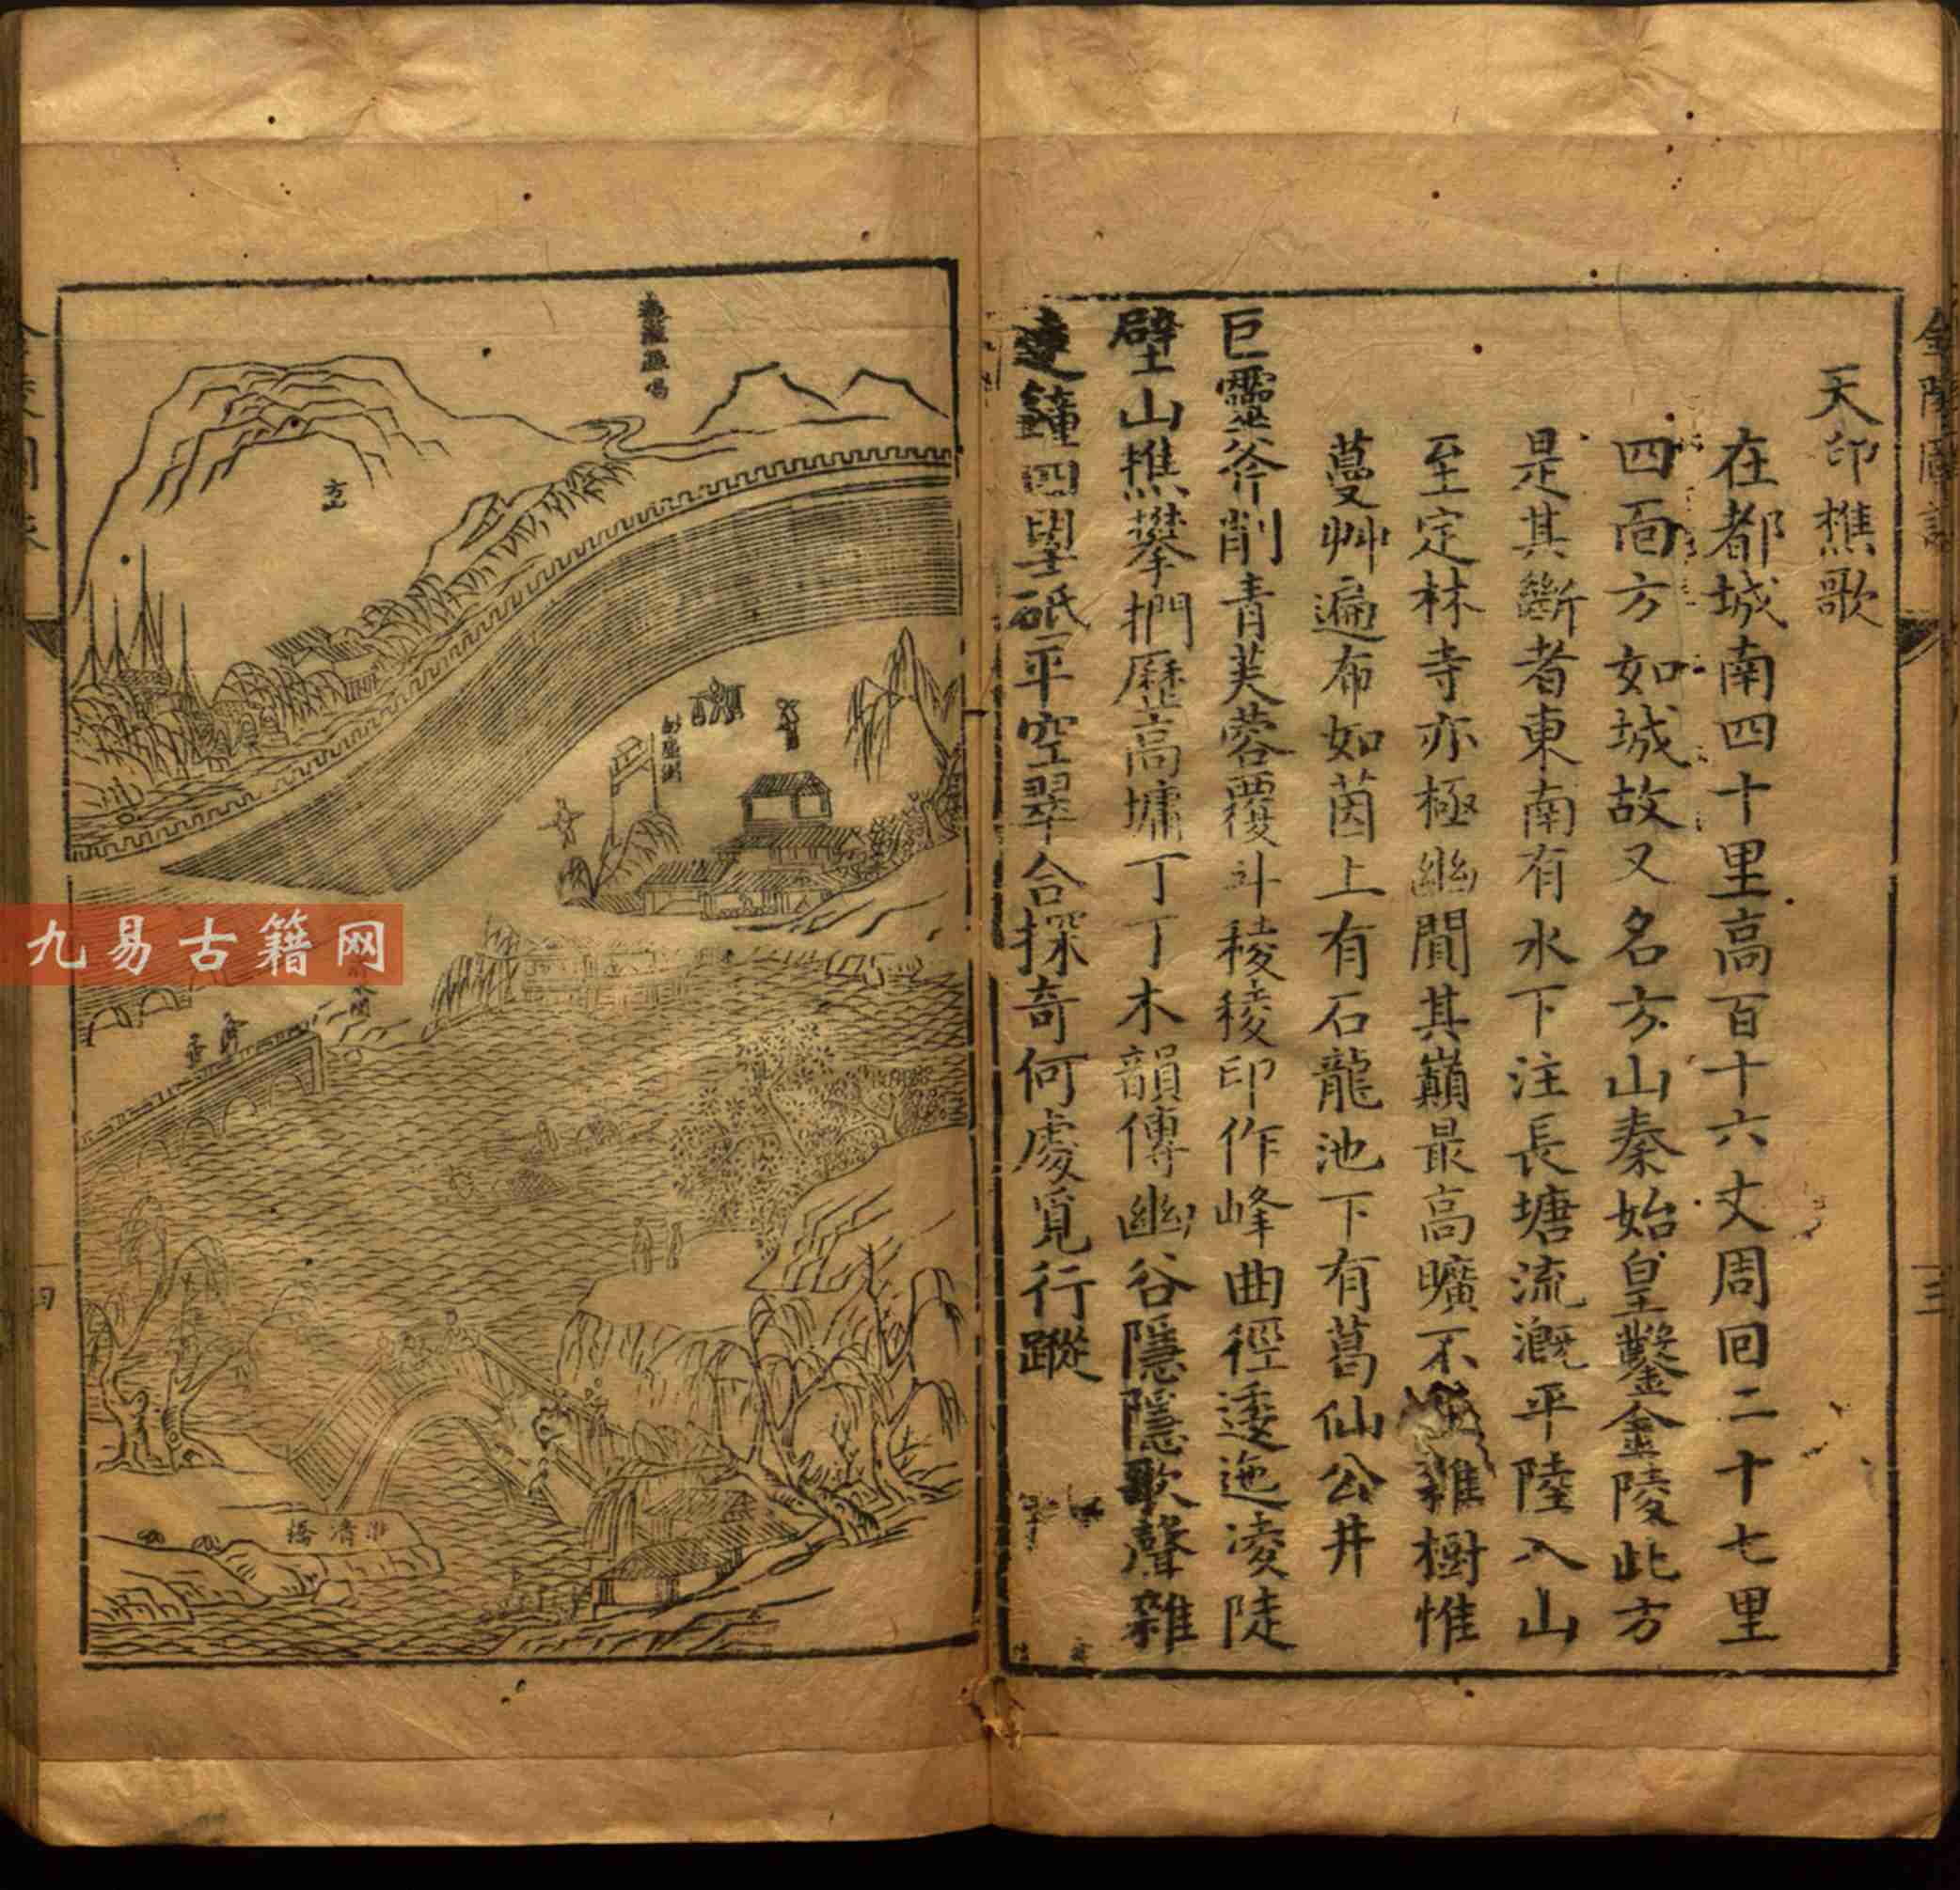 天印樵歌
在都城南四十里高百十六丈周回二十七里
四面方如城故又名方山秦始皇鑿金陵此方
是其斷者東南有水下注長塘流溉平陸入山
至定林寺亦極幽閴其巔最高曠不雜樹惟
蔓艸遍布如茵上有石龍池下有葛仙公井
巨靈斧削青芙蓉覆斗稜稜印作峰曲徑逶迤凌陡
壁山樵攀捫歷高墉丁丁木韻傳幽谷隱隱歌聲雜
遠鐘四望砥平空翠合探奇何處覓行蹤
金陵圖詠
三
方山
淮清橋
九易古籍网